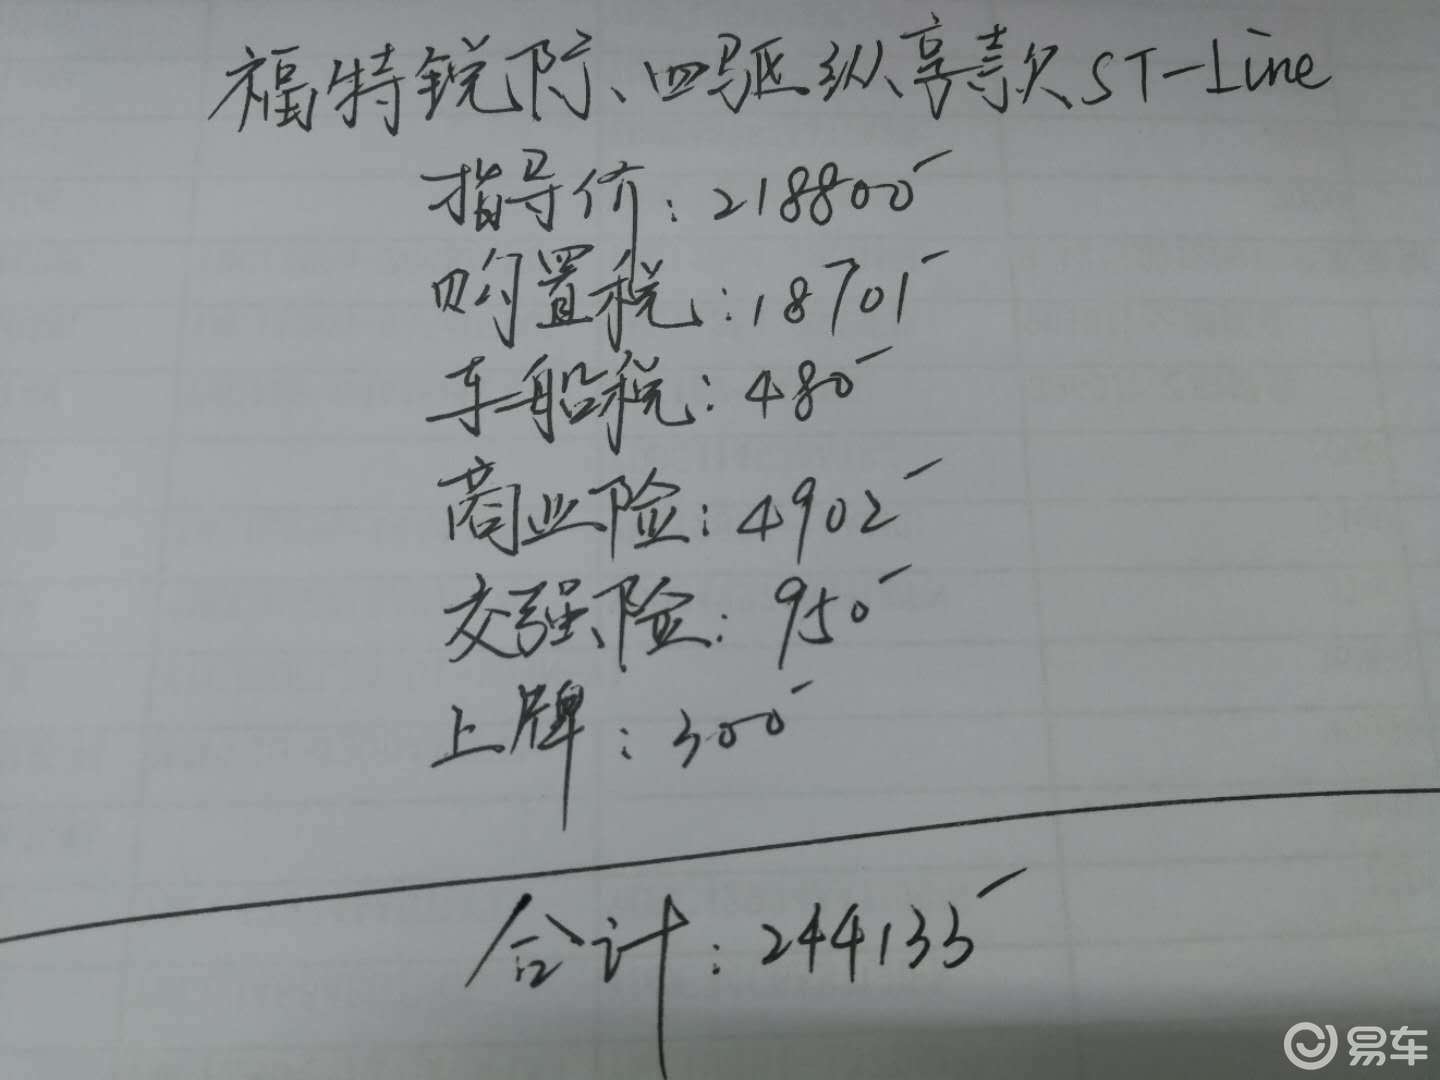 福特锐际、四驱纵享款ST-Line
指导价：218800
购置税：18701
车船税：480
商业险：4902
交强险：950
上牌：300
合计：244133
易车